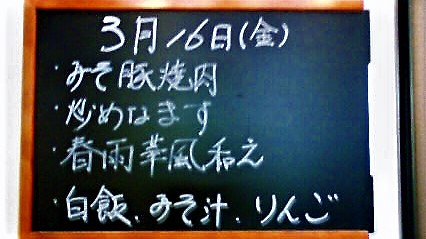 3月16日(金)
・みそ豚焼肉
・炒めなます
・春雨華風和え
・白飯、みそ汁、りんご